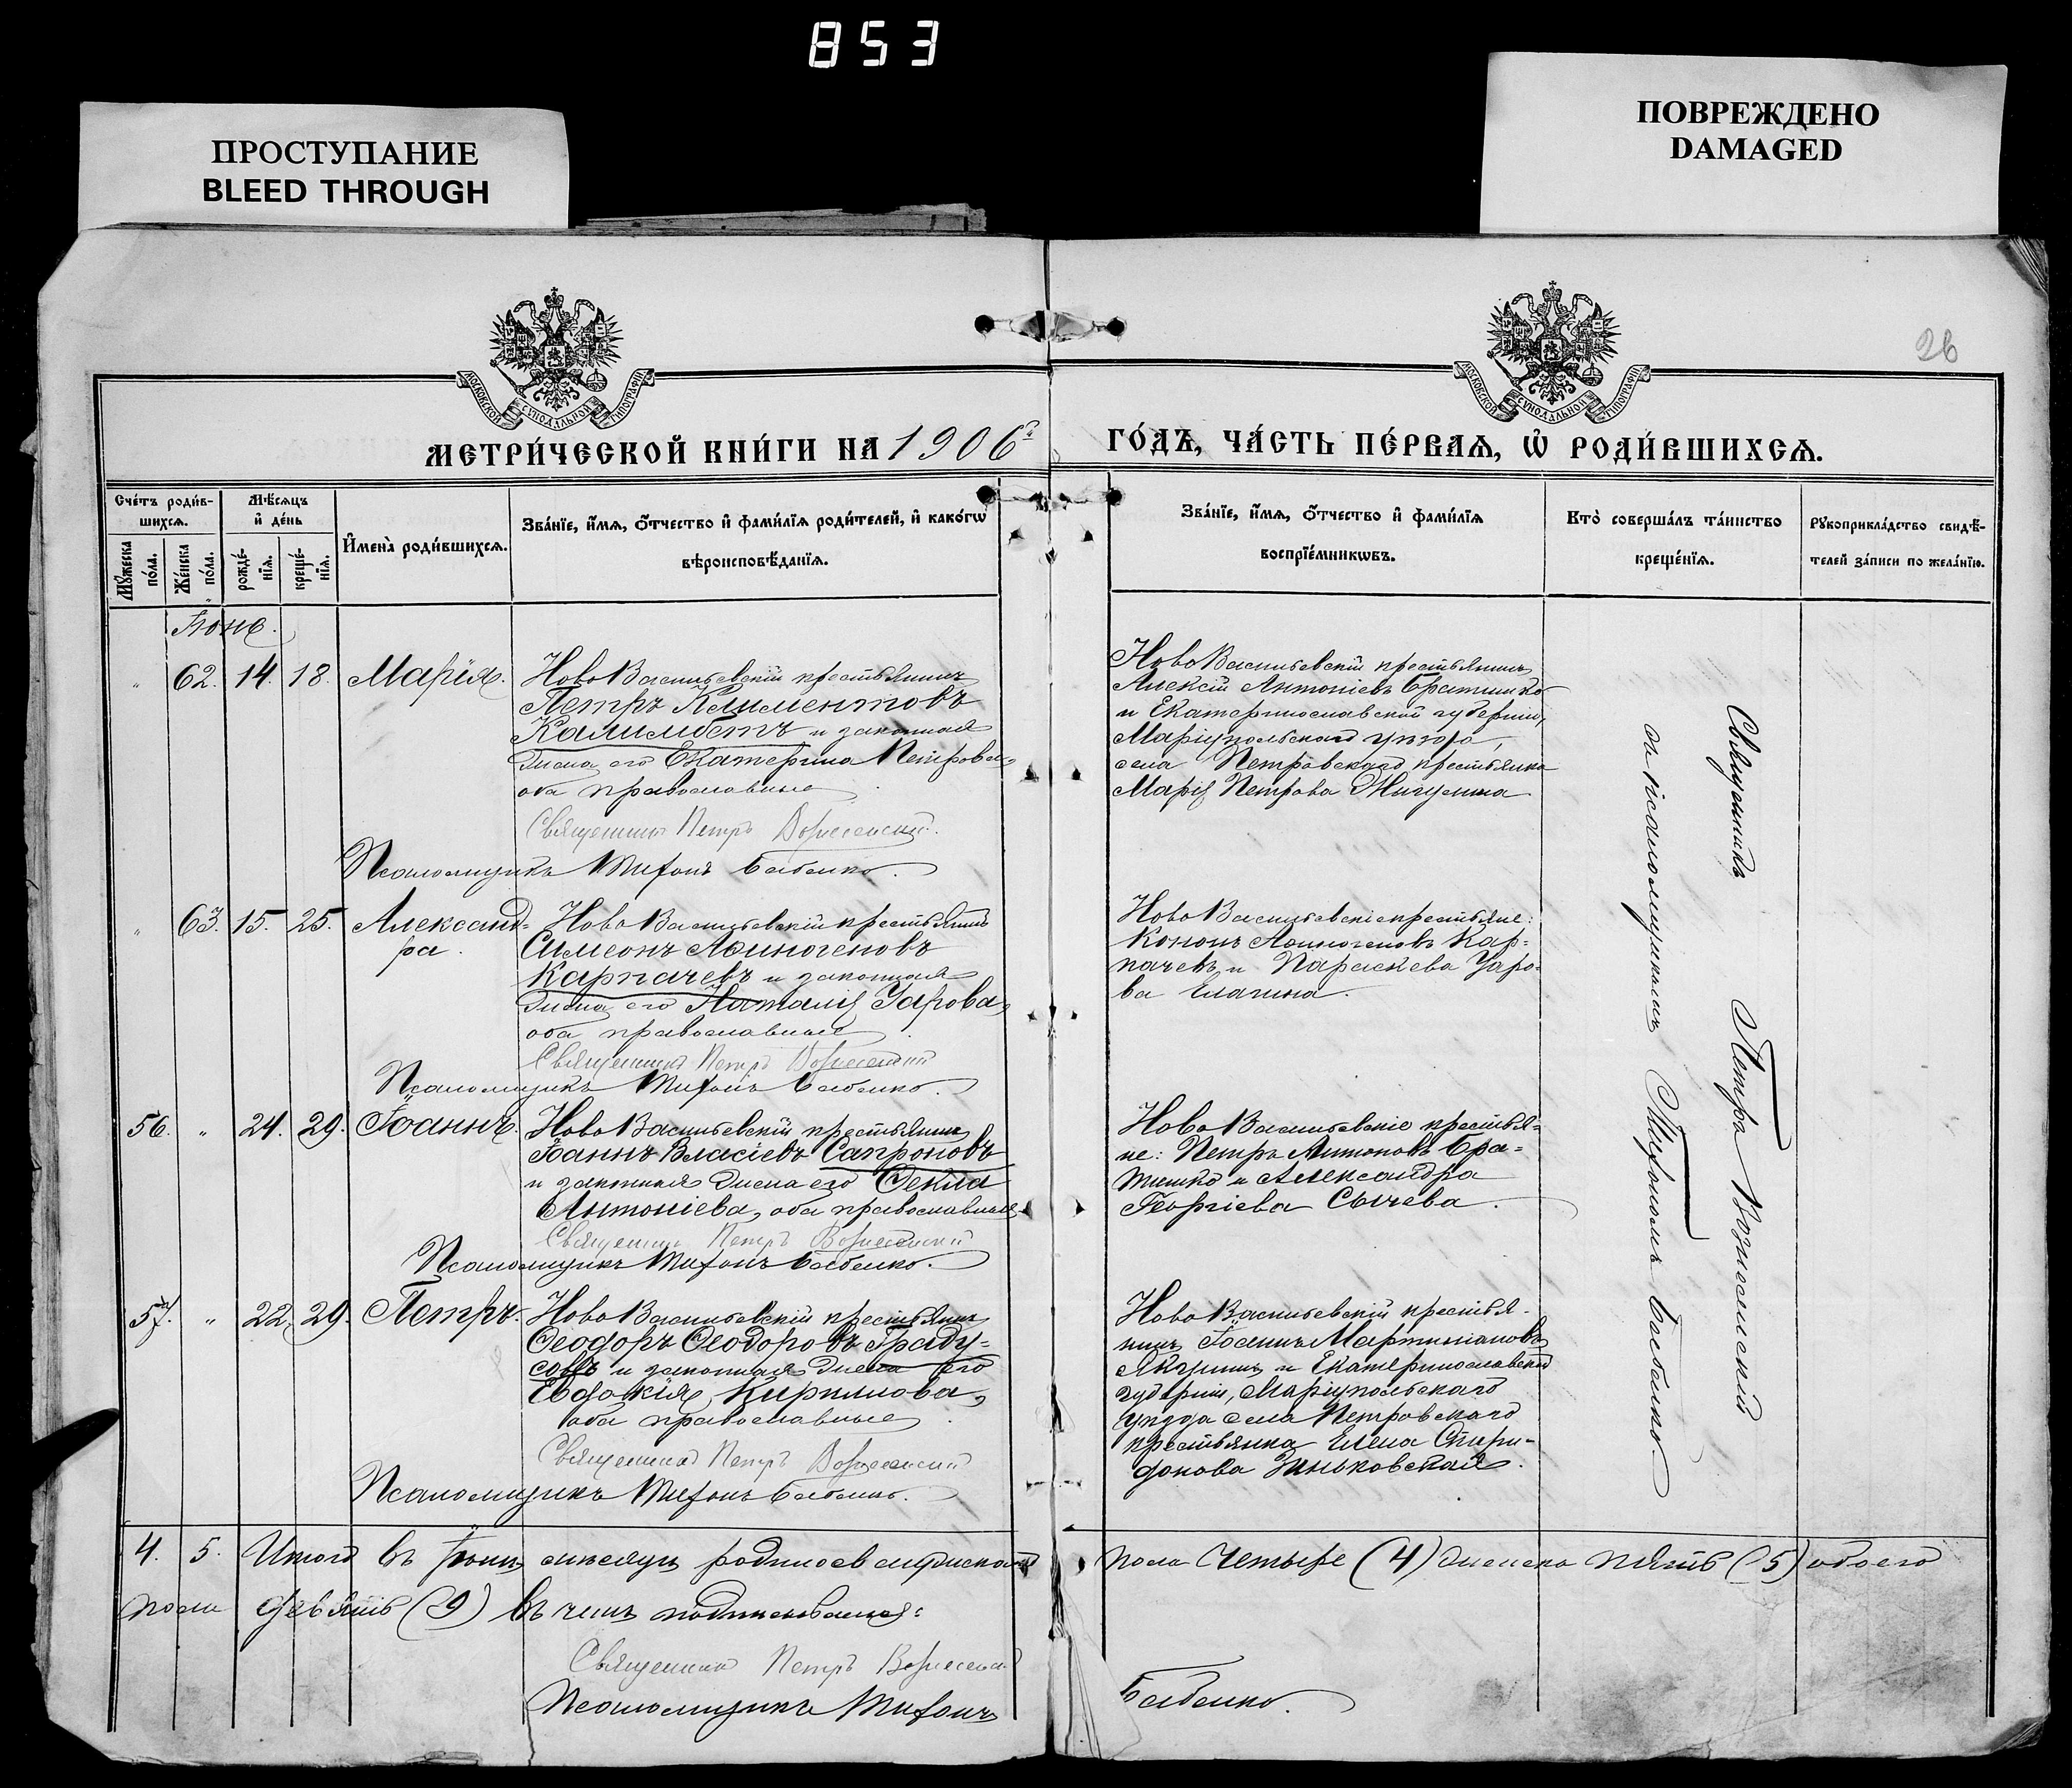 853
ПРОСТУПАНИЕ
BLEED THROUGH
ПОВРЕЖДЕНО
DAMAGED
26
МОСКОВСКОЙ СѴНОДАЛЬНОЙ ТИПОГРАФІИ
МОСКОВСКОЙ СѴНОДАЛЬНОЙ ТИПОГРАФІИ
МЕТРИ́ЧЕСКОЙ КНИ́ГИ НА 1906 й
ГО́ДЪ, ЧА́СТЬ ПЕ́РВАѦ, Ѡ҆ РОДИ́ВШИХСѦ.
Сче́тъ роди́в-
шихсѧ.
Мꙋ́жеска по́ла.
Же́нска по́ла.
Мѣ́сѧцъ
и҆ де́нь
рожде́-
нїѧ.
креще́-
нїѧ.
И҆мена̀ роди́вшихсѧ.
Зва́нїе, и҆́мѧ, ѻ҆́тчество и҆ фами́лїѧ роди́телей, и҆ како́гѡ
вѣроисповѣ́данїѧ.
Зва́нїе, и҆́мѧ, ѻ҆́тчество и҆ фами́лїѧ
воспрїе́мникѡвъ.
Кто̀ соверша́лъ та́инство
креще́нїѧ.
Рꙋкоприкла́дство свидѣ́-
телей за́писи по жела́нїю.
Іюнь.
" 62. 14. 18. Марія.
НовоВасильевскій крестьянинъ
Петръ Климентовъ
Калимбетъ и законная
жена его Екатерина Петрова,
оба православные
Священникъ Петръ Вознесенскій.
Псаломщикъ Тифонъ Бабенко.
НовоВасильевскій крестьянинъ
Алексій Антоніевъ Братишко
и Екатеринославской губерніи,
Маріупольскаго уѣзда,
села Петровскаго крестьянка
Марія Петрова Жигулина
" 63. 15. 25. Александ-
ра.
НовоВасильевскій крестьянинъ
Симеонъ Аѳиногеновъ
Карпачевъ и законная
жена его Наталія Уарова,
оба православные
Священникъ Петръ Вознесенскій
Псаломщикъ Тифонъ Бабенко.
НовоВасильевскіе крестьяне:
Кононъ Аѳиногеновъ Кар=
пачевъ и Параскева Уаро=
ва Елагина.
56. " 24. 29. Іоаннъ.
НовоВасильевскій крестьянинъ
Іоаннъ Власіевъ Сапроновъ
и законная жена его Ѳекла
Антоніева, оба православные
Священникъ Петръ Вознесенскій
Псаломщикъ Тифонъ Бабенко.
НовоВасильевскіе крестья=
не: Петръ Антоновъ Бра=
тишко и Александра
Георгіева Сычева.
57. " 22. 29. Петръ.
НовоВасильевскій крестьянинъ
Ѳеодоръ Ѳеодоровъ Граду=
совъ и законная жена его
Евдокія Кириллова,
оба православные
Священникъ Петръ Вознесенскій
Псаломщикъ Тифонъ Бабенко.
НовоВасильевскій крестья-
нинъ Іоаннъ Мартиніановъ
Якунинъ и Екатеринославской
губерніи, Маріупольскаго
уѣзда села Петровскаго
крестьянка Елена Спири-
донова Зиньковская.
Священникъ Петръ Вознесенскій
съ псаломщикомъ Тифономъ Бабенко
4. 5. Итого въ Іюнѣ мѣсяцѣ родилось мужескаго пола Четыре (4) женска пять (5) обоего
пола девять (9) въ чемъ подписываемся:
Священникъ Петръ Вознесенскій
Псаломщикъ Тифонъ Бабенко.